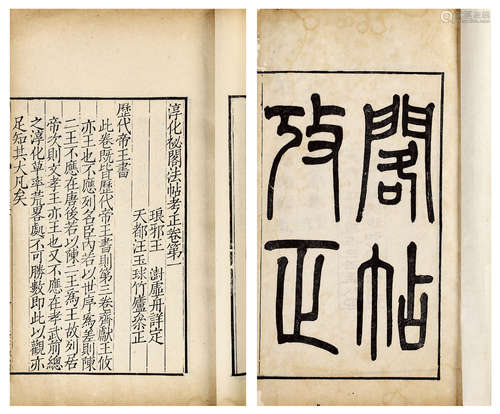 閣帖
攷正
淳化秘閣法帖考正卷第一
琅邪王澍虛舟詳定
天都汪玉球竹廬參正
歷代帝王書
此卷既皆歷代帝王書則第三卷齊獻王攸
亦王也不應列名臣內若以世序為差則陳
二王不應在唐後若以陳二王為王故列居
帝次則文孝王亦王也又不應在孝武前總
之淳化草率荒畧處不可勝數即此以觀亦
足知其大凡矣